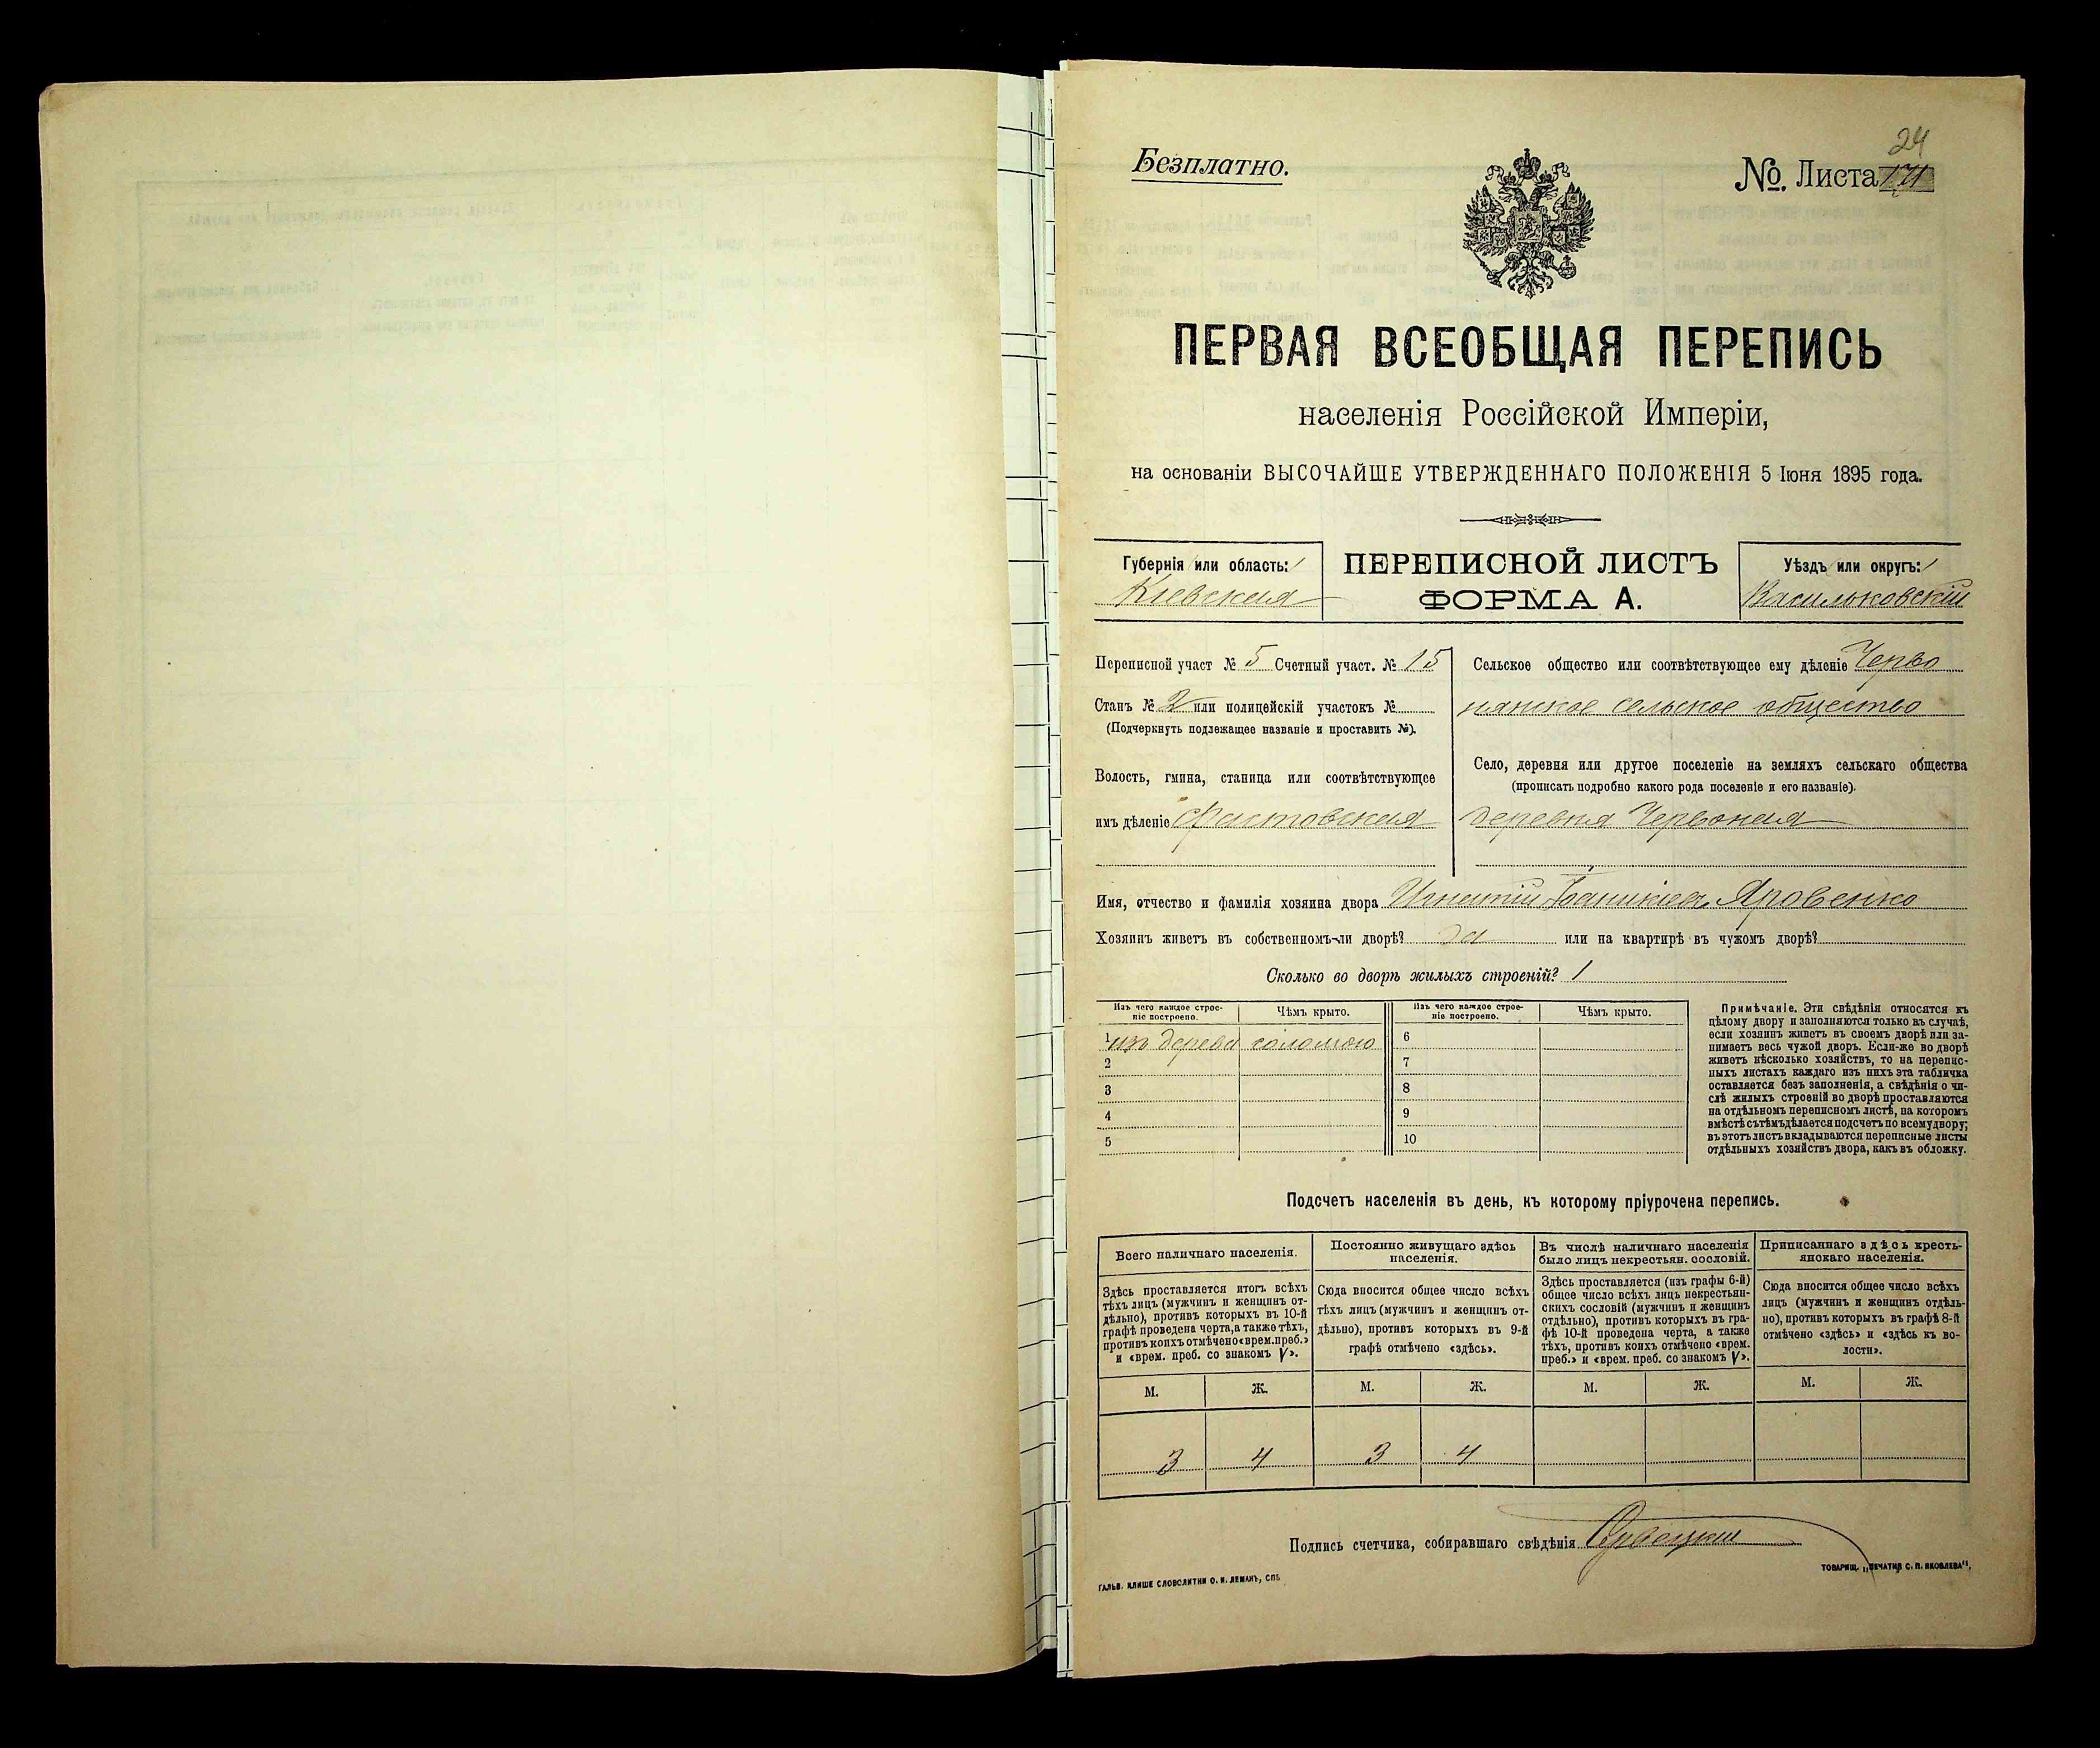 24
Безплатно.
№. Листа
ПЕРВАЯ ВСЕОБЩАЯ ПЕРЕПИСЬ
населенія Россійской Имперіи,
на основаніи ВЫСОЧАЙШЕ УТВЕРЖДЕННАГО ПОЛОЖЕНІЯ 5 Іюня 1895 года.
Губернія или область:
Кіевская
ПЕРЕПИСНОЙ ЛИСТЪ
ФОРМА А.
Уѣздъ или округъ:
Васильковскій
Переписной участ № 5 Счетный участ. № 15
Станъ № 2 или полицейскій участокъ №
(Подчеркнуть подлежащее названіе и проставить №).
Волость, гмина, станица или соотвѣтствующее
имъ дѣленіе Фастовская
Сельское общество или соотвѣтствующее ему дѣленіе Черво
нянское сельское общество
Село, деревня или другое поселеніе на земляхъ сельскаго общества
(прописать подробно какого рода поселеніе и его названіе).
деревня Червоная
Имя, отчество и фамилія хозяина двора Игнатій Яровенко
Хозяинъ живетъ въ собственномъ-ли дворѣ? да или на квартирѣ въ чужомъ дворѣ?
Сколько во дворѣ жилыхъ строеній? 1
Изъ чего каждое строе-
ніе построено.
Чѣмъ крыто.
Изъ чего каждое строе-
ніе построено.
Чѣмъ крыто.
1 изъ дерева соломою
2
3
4
5
6
7
8
9
10
Примѣчаніе. Эти свѣдѣнія относятся къ
цѣлому двору и заполняются только въ случаѣ,
если хозяинъ живетъ въ своемъ дворѣ или за-
нимаетъ весь чужой дворъ. Если-же во дворѣ
живетъ нѣсколько хозяйствъ, то на перепис-
ныхъ листахъ каждаго изъ нихъ эта табличка
оставляется безъ заполненія, а свѣдѣнія о чи-
слѣ жилыхъ строеній во дворѣ проставляются
на отдѣльномъ переписномъ листѣ, на которомъ
вмѣстѣ съ тѣмъ дѣлается подсчетъ по всему двору;
въ этотъ листъ вкладываются переписные листы
отдѣльныхъ хозяйствъ двора, какъ въ обложку.
Подсчетъ населенія въ день, къ которому пріурочена перепись.
Всего наличнаго населенія.
Здѣсь проставляется итогъ всѣхъ
тѣхъ лицъ (мужчинъ и женщинъ от-
дѣльно), противъ которыхъ въ 10-й
графѣ проведена черта, а также тѣхъ,
противъ коихъ отмѣчено «врем. преб.»
и «врем. преб. со знакомъ V».
М. Ж.
3 4
Постоянно живущаго здѣсь
населенія.
Сюда вносится общее число всѣхъ
тѣхъ лицъ (мужчинъ и женщинъ от-
дѣльно), противъ которыхъ въ 9-й
графѣ отмѣчено «здѣсь».
М. Ж.
3 4
Въ числѣ наличнаго населенія
было лицъ некрестьян. сословій.
Здѣсь проставляется (изъ графы 6-й)
общее число всѣхъ лицъ некрестьян-
скихъ сословій (мужчинъ и женщинъ
отдѣльно), противъ которыхъ въ гра-
фѣ 10-й проведена черта, а также
тѣхъ, противъ коихъ отмѣчено «врем.
преб.» и «врем. преб. со знакомъ V».
М. Ж.
Приписаннаго здѣсь кресть-
янскаго населенія.
Сюда вносится общее число всѣхъ
лицъ (мужчинъ и женщинъ отдѣль-
но), противъ которыхъ въ графѣ 8-й
отмѣчено «здѣсь» и «здѣсь къ во-
лости».
М. Ж.
Подпись счетчика, собиравшаго свѣдѣнія
ГАЛЬВ. КЛИШЕ СЛОВОЛИТНИ О. И. ЛЕМАНЪ, СПБ
ТОВАРИЩ. „ПЕЧАТНЯ С. П. ЯКОВЛЕВА".